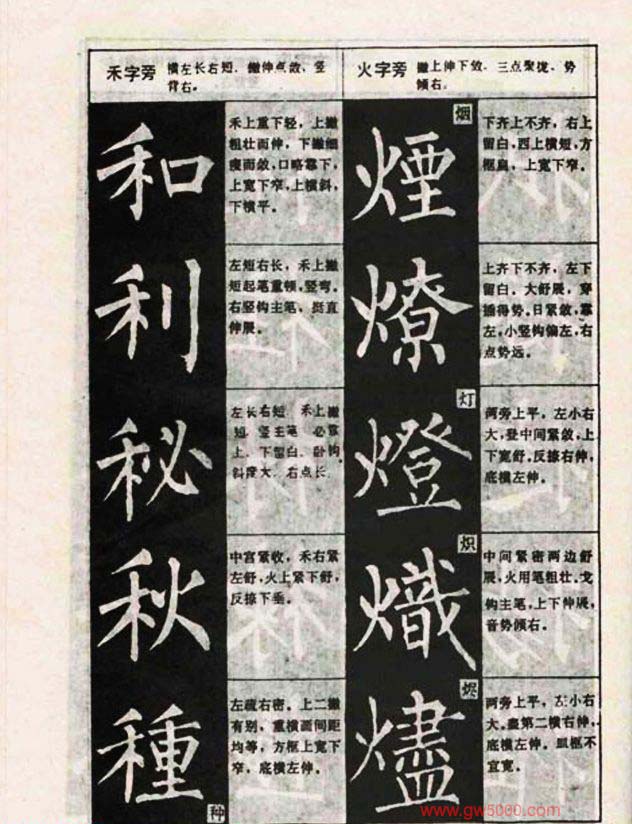 禾字旁
横左长右短、撇伸点敛、竖
背右。
火字旁
撇上伸下敛、三点聚拢、势
倾右。
和
禾上重下轻，上撇
粗壮而伸，下撇细
瘦而敛，口略靠下，
上宽下窄，上横斜，
下横平。
利
左短右长，禾上撇
短起笔重顿，竖弯。
右竖钩主笔，挺直
伸展。
秘
左长右短 禾上撇
短 竖主笔 必靠
上、下留白、卧钩
斜度大、右点长
秋
中宫紧收，禾右紧
左舒，火上紧下舒，
反捺下垂。
種
种
左疏右密。上二撇
有别，重横画间距
均等，方框上宽下
窄，底横左伸。
煙
烟
下齐上不齐，右上
留白，西上横短，方
框扁，上宽下窄。
燎
上齐下不齐，左下
留白。大舒展，穿
插得势。日紧敛，靠
左，小竖钩偏左，右
点势远。
燈
灯
两旁上平，左小右
大，登中间紧敛，上
下宽舒。反捺右伸，
底横左伸。
熾
炽
中间紧密两边舒
展，火用笔粗壮。戈
钩主笔，上下伸展，
音势倾右。
燼
烬
两旁上平，左小右
大。盡第二横右伸，
底横左伸。皿框不
宜宽。
www.gw5000.com